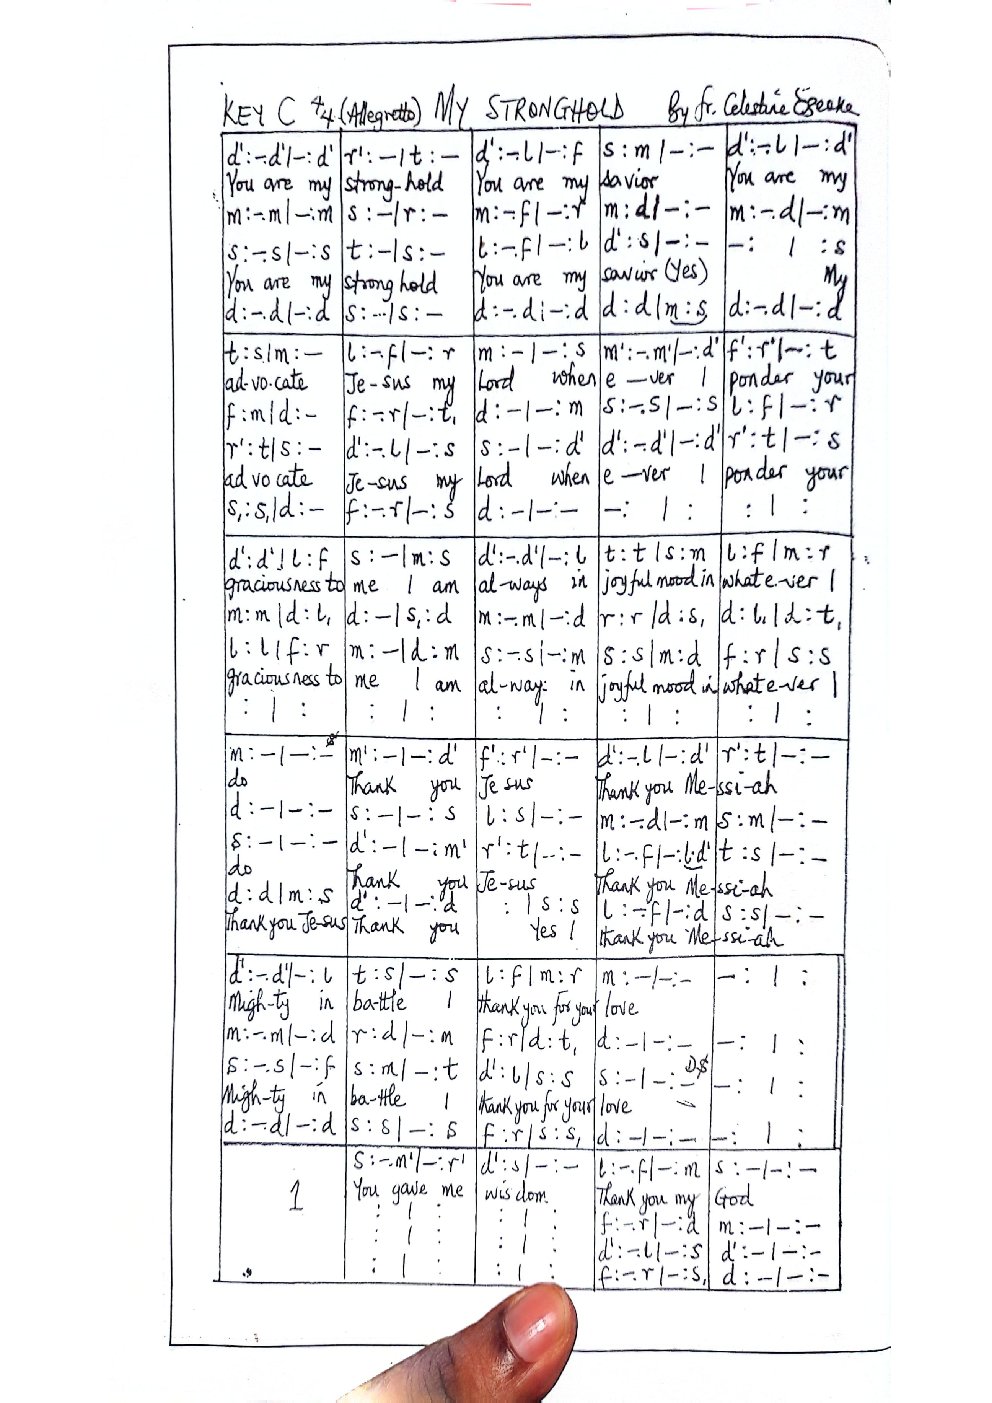 KEY C 4/4 (Allegretto) MY STRONGHOLD By Fr. Celestine
d':-.d'|-:d' r':-|t:- d':-.l|-:f s:m|-:- d':-.l|-:d'
You are my strong-hold You are my savior You are my
m:-.m|-:m s:-|r:- m:-.f|-:r m:d|-:- m:-.d|-:m
s:-.s|-:s t:-|s:- l:-.f|-:l d':s|-:- -: | :s
You are my strong hold You are my savior (Yes) My
d:-.d|-:d s:-|s:- d:-.d|-:d d:d|m:s d:-.d|-:d
t:s|m:- l:-.f|-:r m:-|-:s m':-.m'|-:d' f':r'|-:t
ad-vo-cate Je-sus my Lord when e-ver I ponder your
f:m|d:- f:-.r|-:t, d:-|-:m s:-.s|-:s l:f|-:r
r':t|s:- d':-.l|-:s s:-|-:d' d':-.d'|-:d' r':t|-:s
ad vo cate Je-sus my Lord when e-ver I ponder your
s,:s,|d:- f:-.r|-:s d:-|-:- -: | : : | :
d':d'|l:f s:-|m:s d':-.d'|-:l t:t|s:m l:f|m:r
graciousness to me I am al-ways in joyful mood in whate-ver I
m:m|d:l, d:-|s,:d m:-.m|-:d r:r|d:s, d:l,|d:t,
l:l|f:r m:-|d:m s:-.s|-:m s:s|m:d f:r|s:s
graciousness to me I am al-ways in joyful mood in whate-ver I
: | : : | : : | : : | : : | :
m:-|-:- m':-|-:d' f':r'|-:- d':-.l|-:d' r':t|-:-
do Thank you Je sus Thank you Me-ssi-ah
d:-|-:- s:-|-:s l:s|-:- m:-.d|-:m s:m|-:-
s:-|-:- d':-|-:m' r':t|-:- l:-.f|-:l.d' t:s|-:-
do Thank you Je-sus Thank you Me-ssi-ah
d:d|m:s d':-|-:d : |s:s l:-.f|-:d s:s|-:-
Thank you Je-sus Thank you Yes I thank you Me-ssi-ah
d':-.d'|-:l t:s|-:s l:f|m:r m:-|-:- -: | :
Migh-ty in ba-ttle I thank you for your love
m:-.m|-:d r:d|-:m f:r|d:t, d:-|-:- -: | :
s:-.s|-:f s:m|-:t d':l|s:s s:-|-:- D.S -: | :
Migh-ty in ba-ttle I thank you for your love
d:-.d|-:d s:s|-:s f:r|s:s, d:-|-:- -: | :
1 s:-.m'|-:r' d':s|-:- l:-.f|-:m s:-|-:-
You gave me wisdom. Thank you my God
: | : : | : f:-.r|-:d m:-|-:-
: | : : | : d':-.l|-:s d':-|-:-
: | : : | : f:-.r|-:s, d:-|-:-